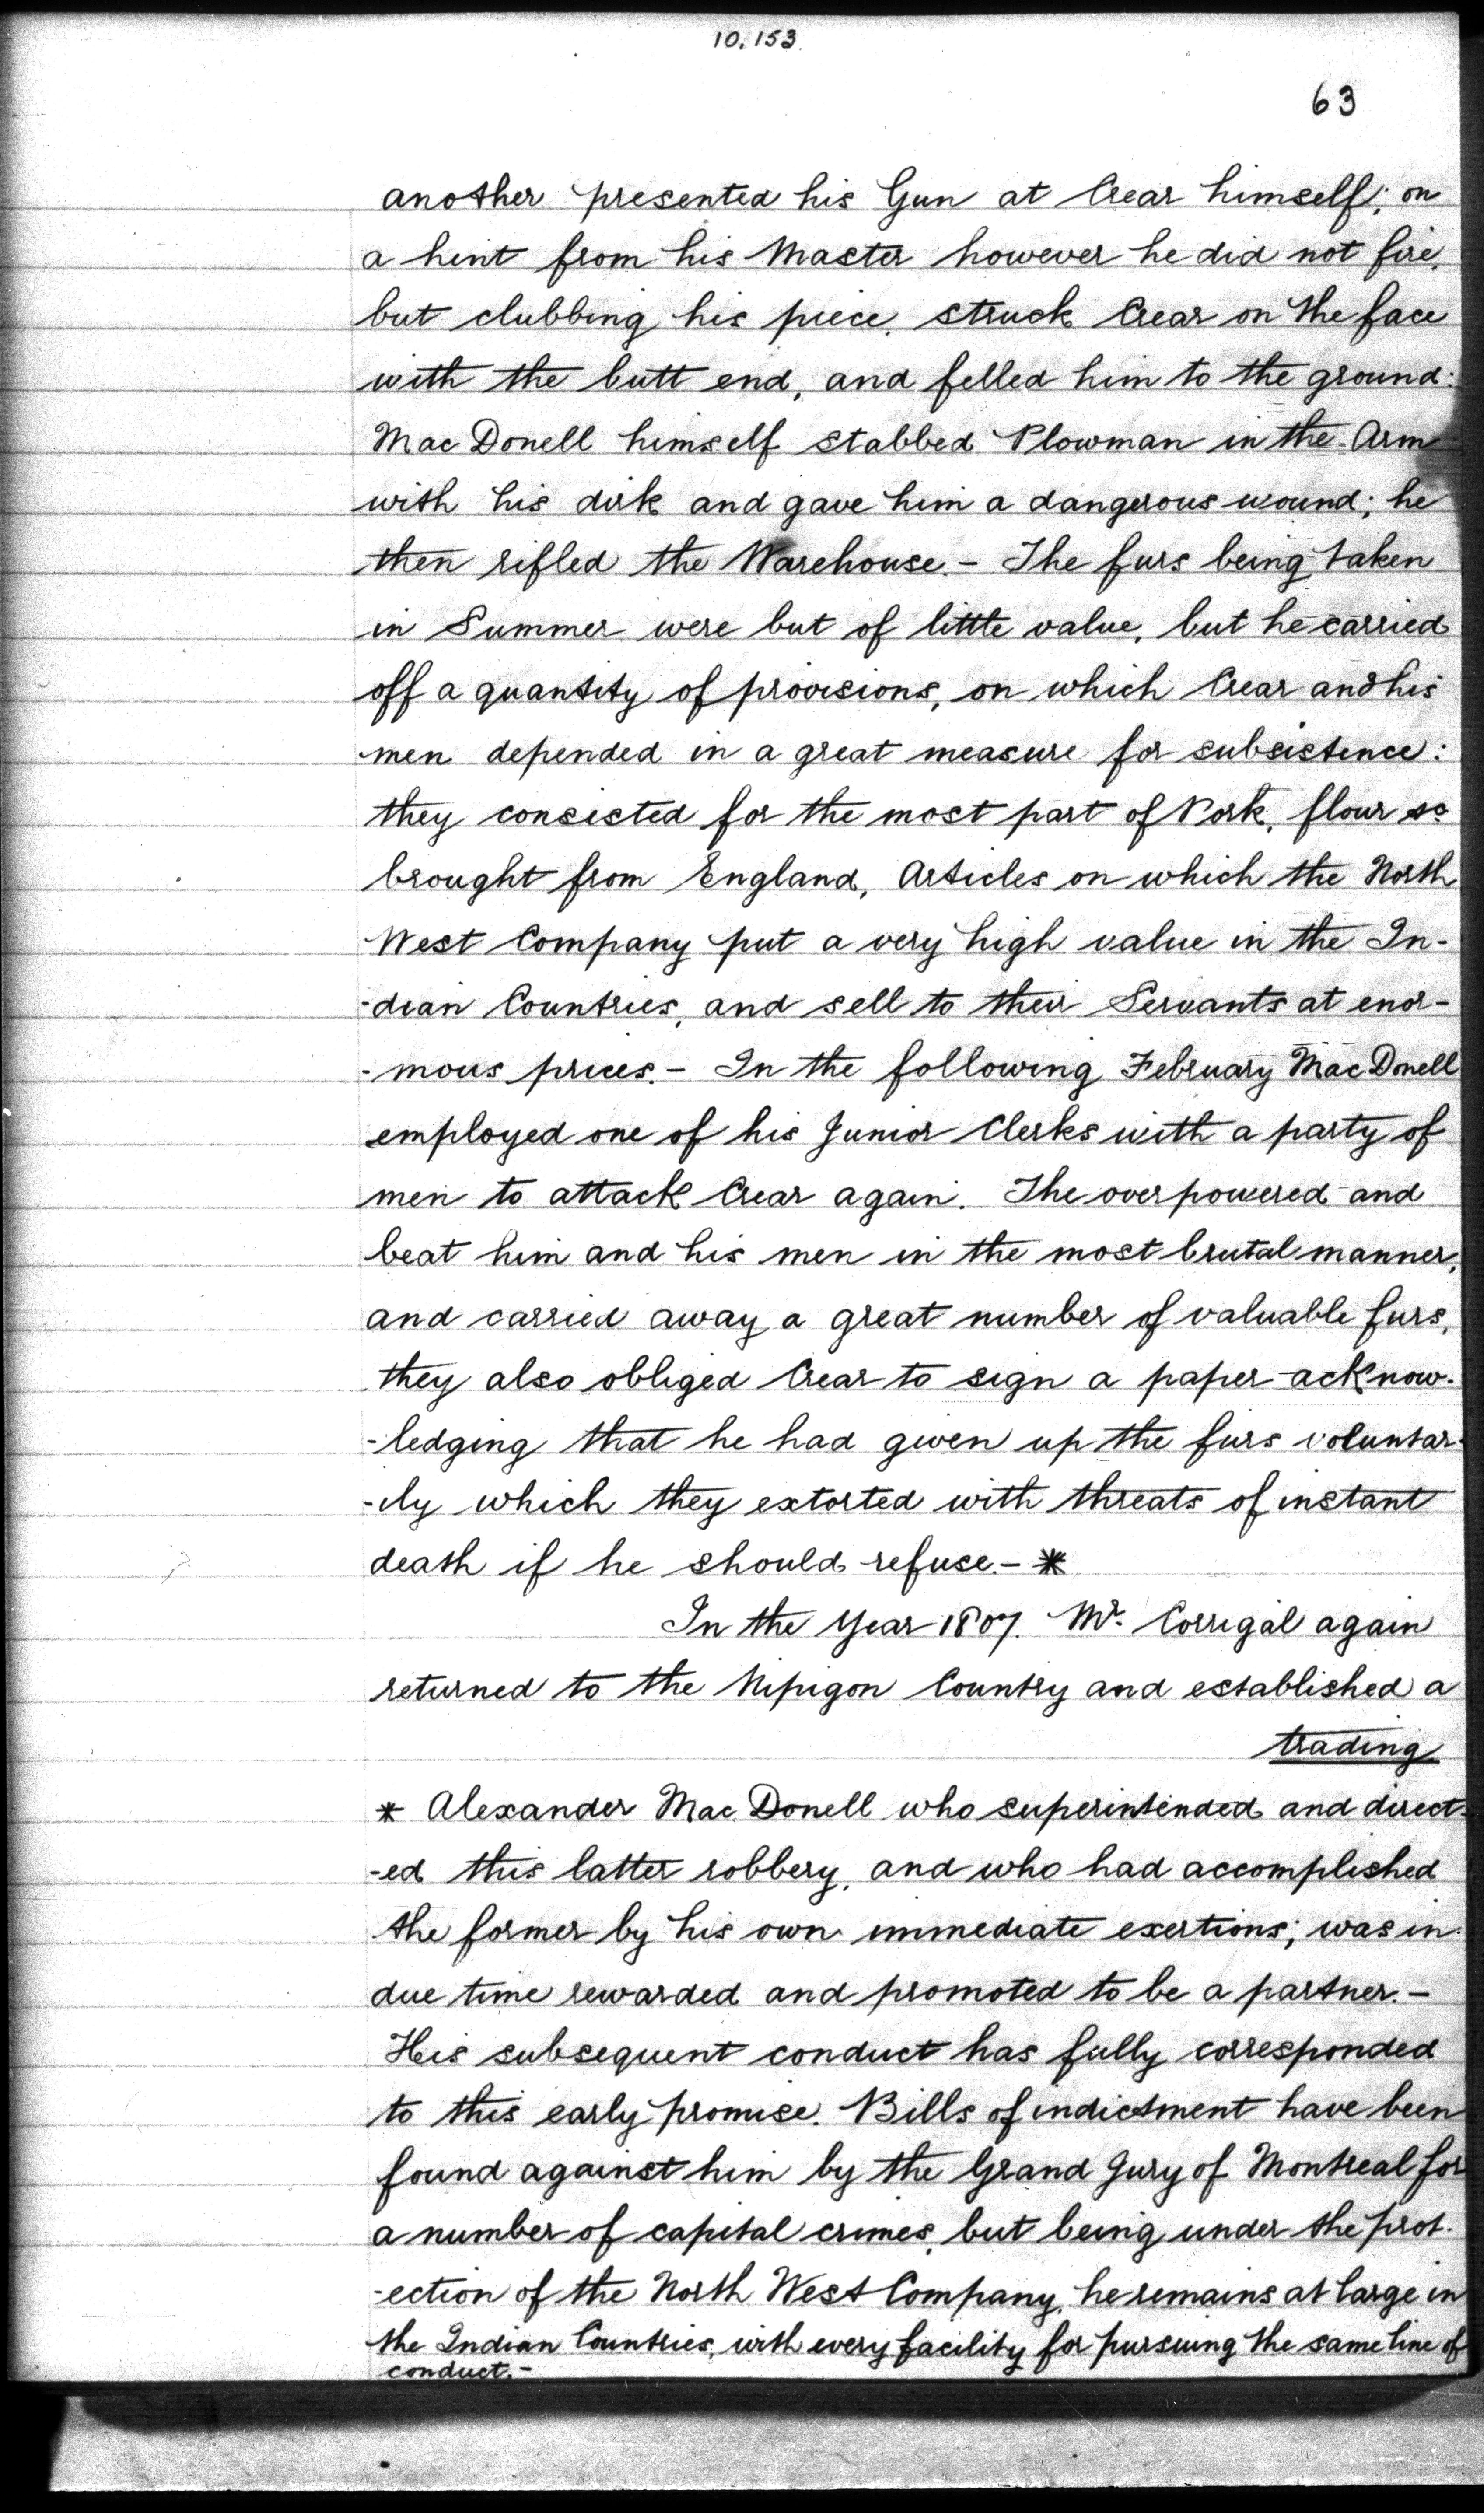 10.153
63
another presented his Gun at Crear himself; on
a hint from his Master however he did not fire,
but clubbing his piece, struck Crear on the face
with the butt end, and felled him to the ground:
Mac Donell himself stabbed Plowman in the Arm
with his dirk and gave him a dangerous wound; he
then rifled the Warehouse.- The furs being taken
in Summer were but of little value, but he carried
off a quantity of provisions, on which Crear and his
men depended in a great measure for subsistence:
they consisted for the most part of Pork, flour &c
brought from England, Articles on which the North
West Company put a very high value in the In-
-dian Countries, and sell to their Servants at enor-
-mous prices.- In the following February Mac Donell
employed one of his Junior Clerks with a party of
men to attack Crear again. The overpowered and
beat him and his men in the most brutal manner,
and carried away a great number of valuable furs,
they also obliged Crear to sign a paper acknow-
-ledging that he had given up the furs voluntar-
-ily which they extorted with threats of instant
death if he should refuse.- *
In the Year 1807. Mr. Corrigal again
returned to the Nipigon Country and established a
trading
* Alexander Mac Donell who superintended and direct-
-ed this latter robbery, and who had accomplished
the former by his own immediate exertions; was in
due time rewarded and promoted to be a partner.-
His subsequent conduct has fully corresponded
to this early promise. Bills of indictment have been
found against him by the Grand Jury of Montreal for
a number of capital crimes, but being under the prot-
-ection of the North West Company, he remains at large in
the Indian Countries, with every facility for pursuing the same line of
conduct.-